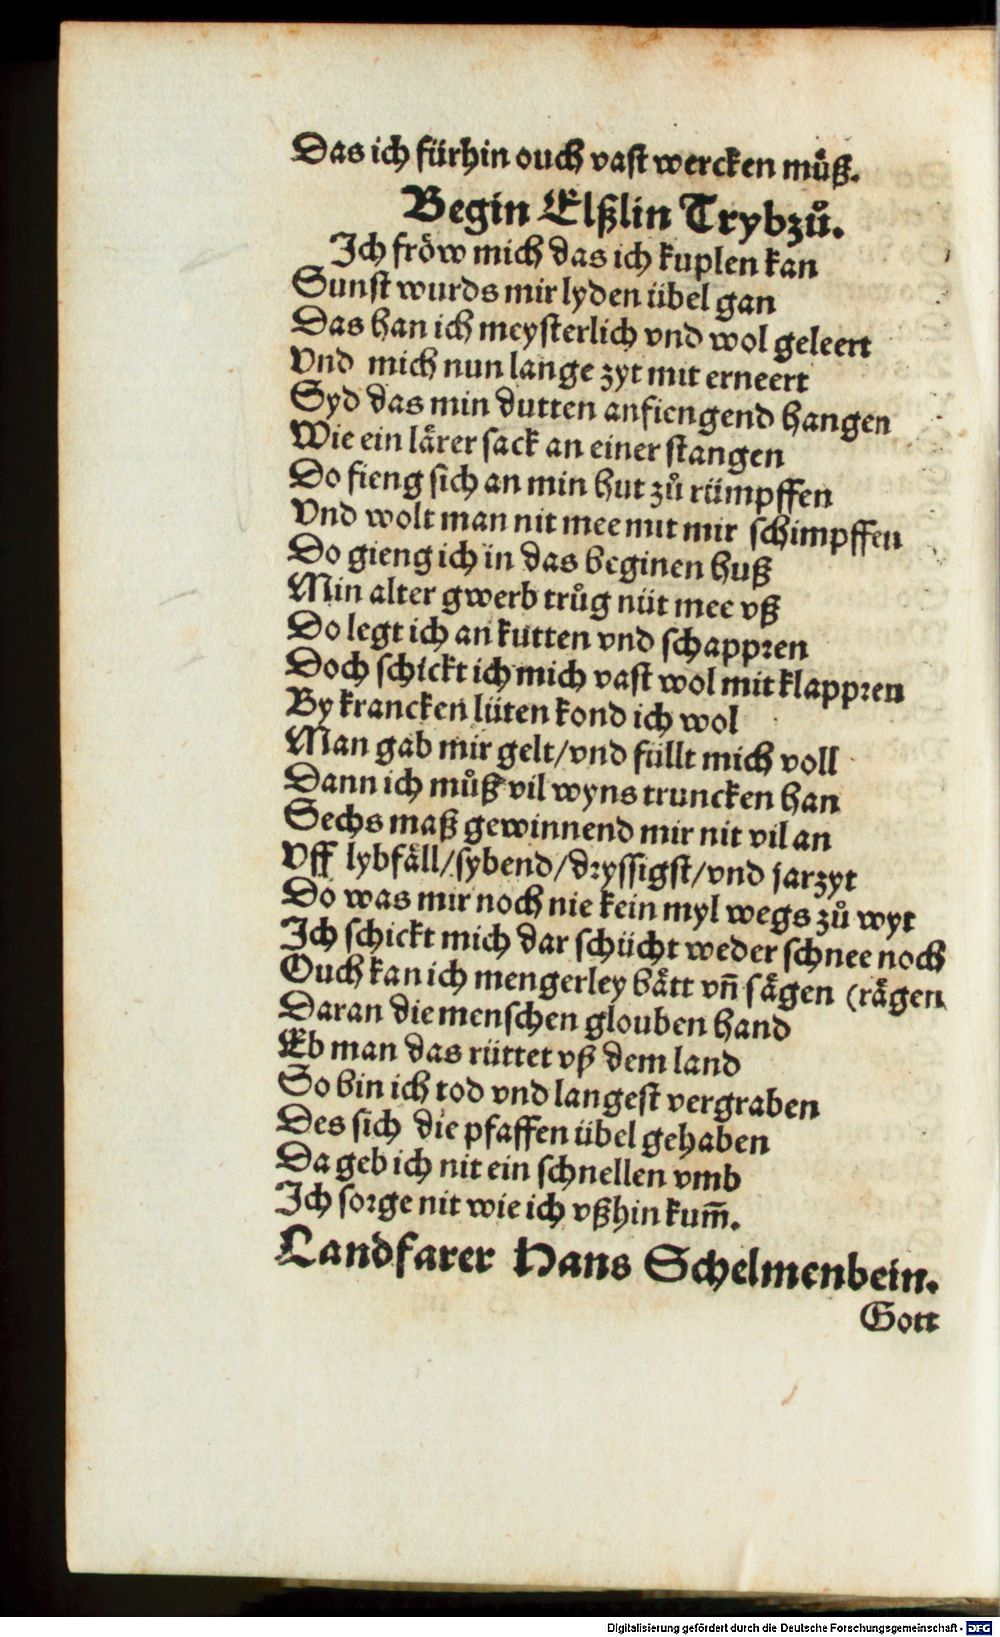 Das ich fürhin ouch vast wercken můß.
Begin Elßlin Trybzů.
Ich fröw mich das ich kuplen kan
Sunst wurds mir lyden übel gan
Das han ich meysterlich vnd wol geleert
Vnd mich nun lange zyt mit erneert
Syd das min dutten anfiengend hangen
Wie ein lärer sack an einer stangen
Do fieng sich an min hut zů rümpffen
Vnd wolt man nit mee mit mir schimpffen
Do gieng ich in das beginen huß
Min alter gwerb trůg nüt mee vß
Do legt ich an kutten vnd schappren
Doch schickt ich mich vast wol mit klappren
By krancken lüten kond ich wol
Man gab mir gelt/vnd füllt mich voll
Dann ich můß vil wyns truncken han
Sechs maß gewinnend mir nit vil an
Vff lybfäll/sybend/dryssigst/vnd jarzyt
Do was mir noch nie kein myl wegs zů wyt
Ich schickt mich dar schücht weder schnee noch
Ouch kan ich mengerley bätt vñ sägen (rägen
Daran die menschen glouben hand
Eb man das rüttet vß dem land
So bin ich tod vnd langest vergraben
Des sich die pfaffen übel gehaben
Da geb ich nit ein schnellen vmb
Ich sorge nit wie ich vßhin kum̄.
Landfarer Hans Schelmenbein.
Gott
Digitalisierung gefördert durch die Deutsche Forschungsgemeinschaft - DFG